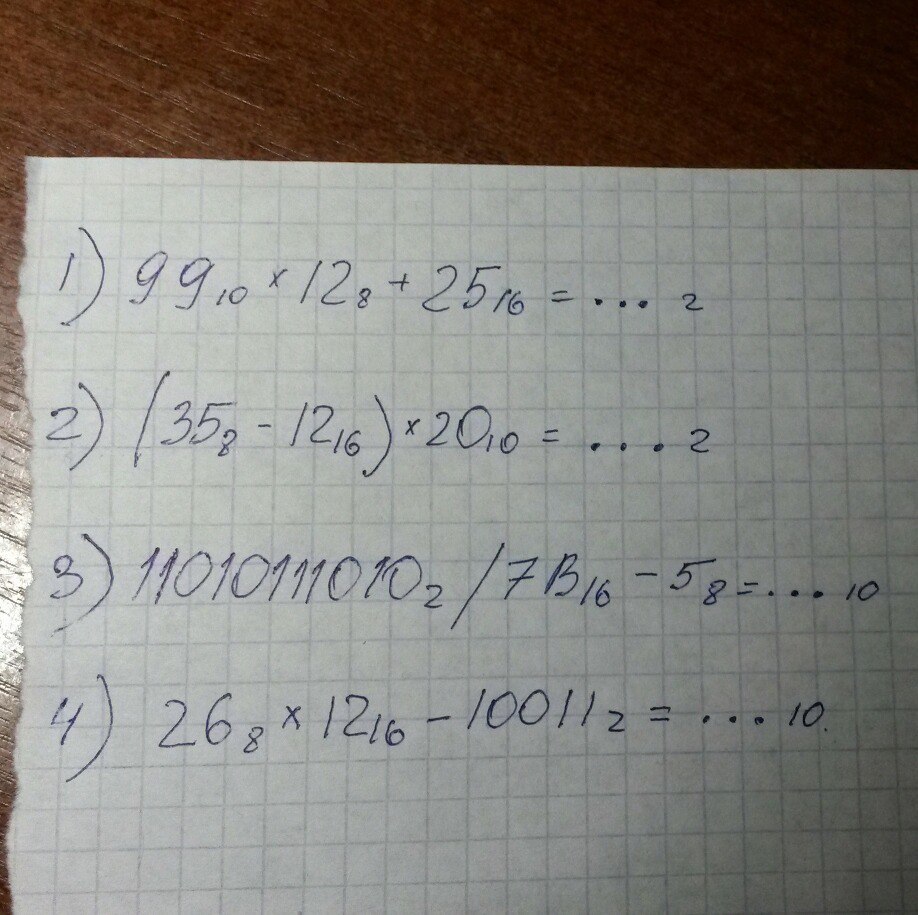 1) 99₁₀ × 12₈ + 25₁₆ = ... ₂
2) (35₈ - 12₁₆) × 20₁₀ = .... ₂
3) 11010111010₂ / 7B₁₆ - 5₈ = ... ₁₀
4) 26₈ × 12₁₆ - 10011₂ = ... ₁₀.